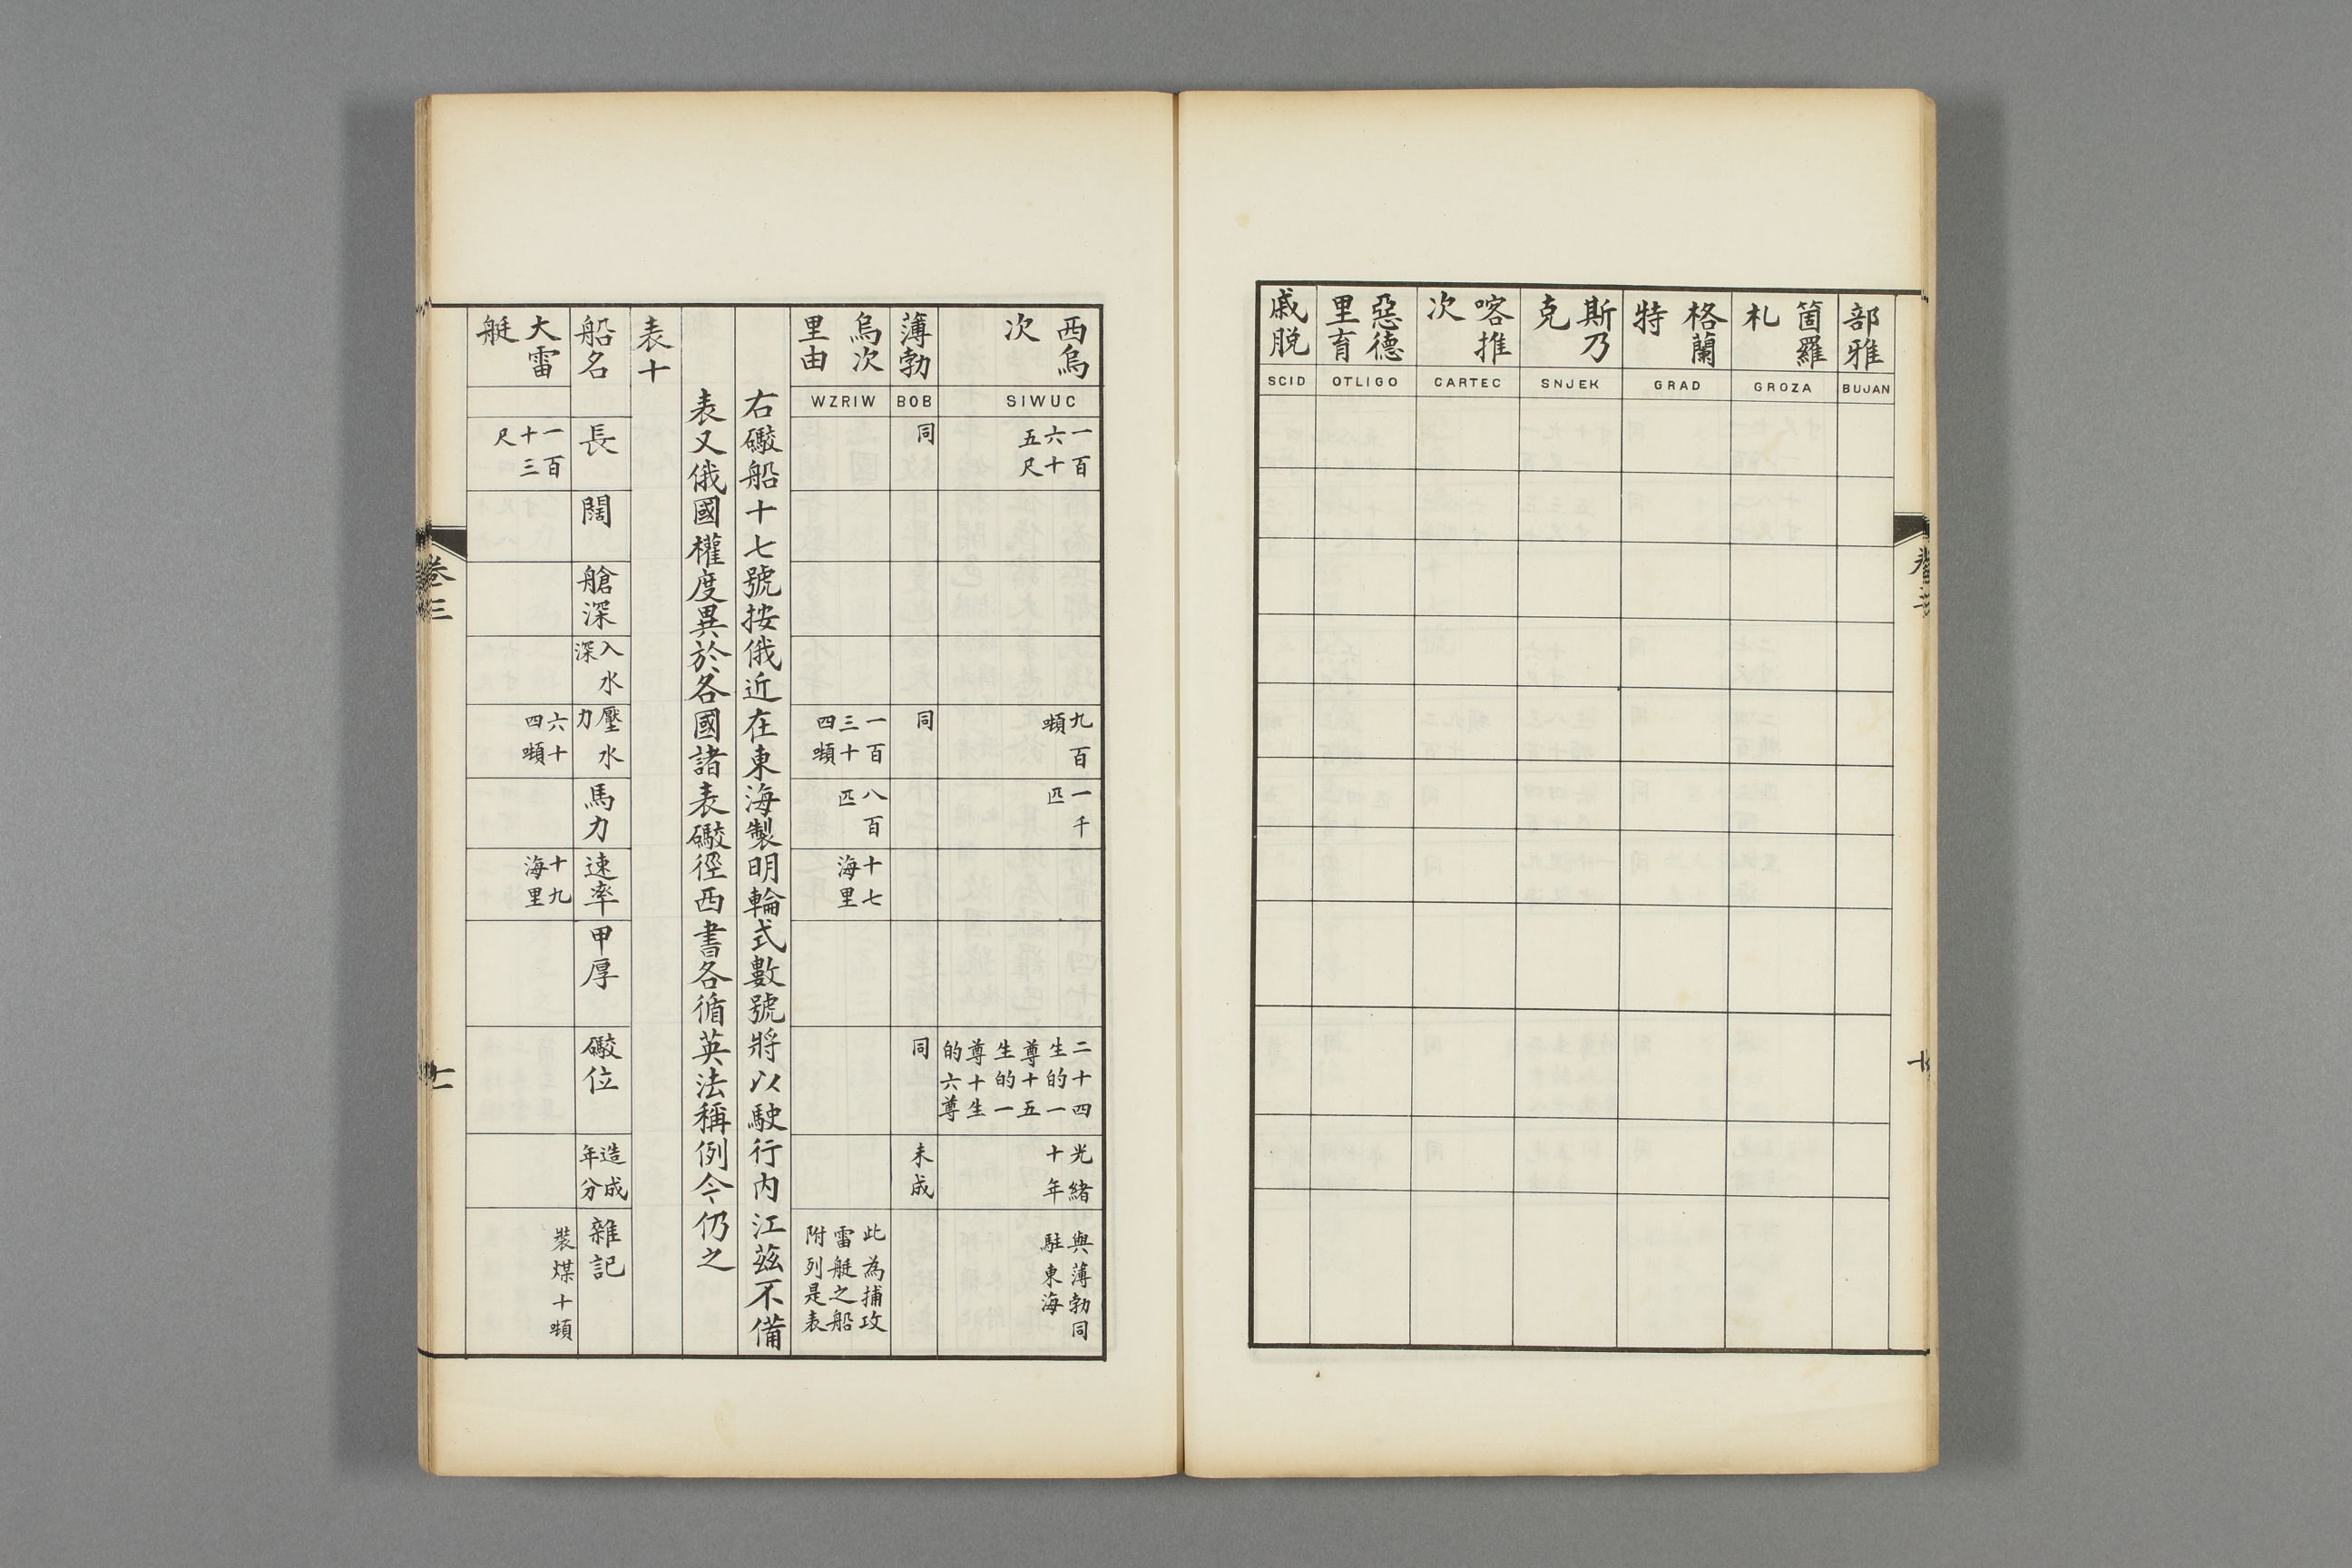 部雅
BUJAN
箇羅札
GROZA
格蘭特
GRAD
斯乃克
SNJEK
喀推次
CARTEC
惡德里育
OTLIGO
戚脱
SCID
西烏次
SIWUC
一百六十五尺
九百噸
一千匹
二十四生的一尊十五生的一尊十生的六尊
光緒十年
與薄勃同駐東海
薄勃
BOB
同
同
同
未成
烏次里由
WZRIW
一百三十四噸
八百匹
十七海里
此為捕攻雷艇之船附列是表
右礮船十七號按俄近在東海製明輪式數號將以駛行内江茲不備
表又俄國權度異於各國諸表礮徑西書各循英法稱例今仍之
表十
船名
長
闊
艙深
入水深
壓水力
馬力
速率
甲厚
礮位
造成年分
雜記
大雷艇
一百十三尺
六十四噸
十九海里
裝煤十噸
卷三
七